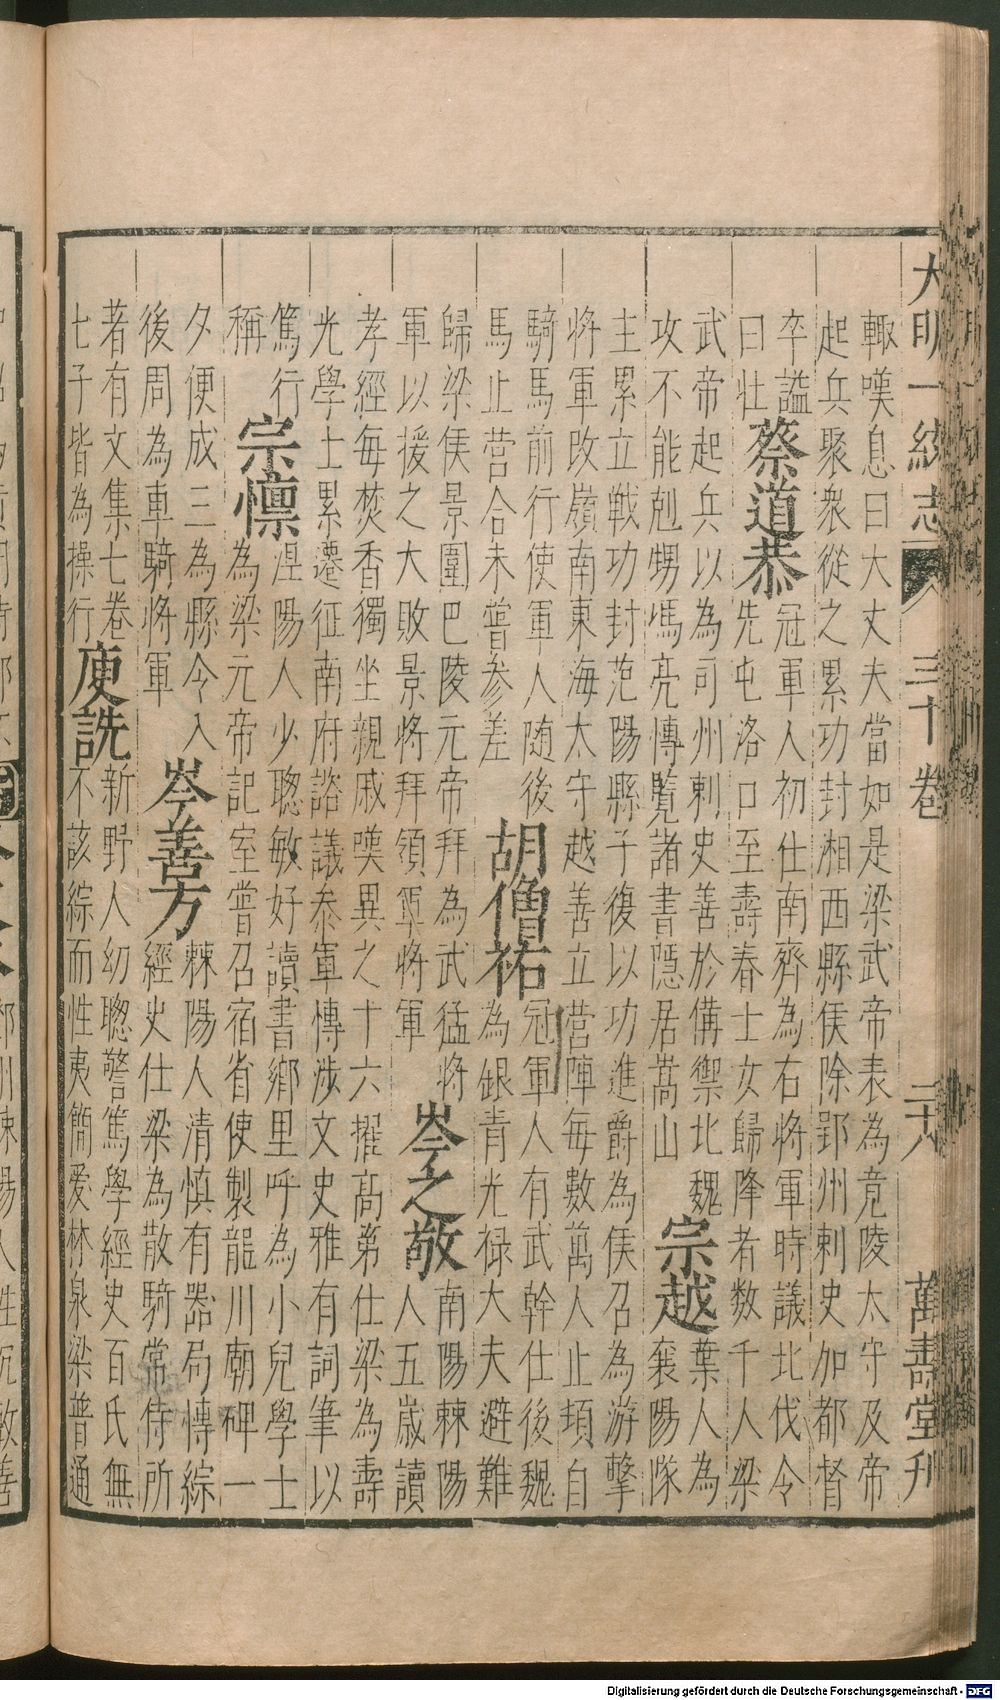 大明一統志 三十卷 二十八 萬壽堂刋
輙嘆息曰大丈夫當如是梁武帝表為竟陵太守及帝
起兵聚衆從之累功封湘西縣侯除郢州刺史加都督
卒謚
曰壯
蔡道恭
冠軍人初仕南齊為右將軍時議北伐令
先屯洛口至壽春士女歸降者数千人梁
武帝起兵以為司州刺史善於備禦北魏
攻不能剋甥馮亮博覽諸書隱居嵩山
宗越
葉人為
襄陽隊
主累立戰功封范陽縣子復以功進爵為侯召為游擊
將軍改嶺南東海太守越善立營陣每數萬人止頓自
騎馬前行使軍人随後
馬止營合未嘗参差
胡僧祐
冠軍人有武幹仕後魏
為銀青光禄大夫避難
歸梁侯景圍巴陵元帝拜為武猛將
軍以援之大敗景將拜領軍將軍
岑之敬
南陽棘陽
人五歳讀
孝經每焚香獨坐親戚嘆異之十六擢高第仕梁為壽
光學士累遷征南府諮議叅軍博涉文史雅有詞筆以
篤行
稱
宗懍
涅陽人少聰敏好讀書鄉里呼為小兒學士
為梁元帝記室嘗召宿省使製龍川廟碑一
夕便成三為縣令入
後周為車騎將軍
岑善方
棘陽人清慎有器局博綜
經史仕梁為散騎常侍所
著有文集七卷
七子皆為操行
庾詵
新野人幼聰警篤學經史百氏無
不該綜而性夷簡愛林泉梁普通
Digitalisierung gefördert durch die Deutsche Forschungsgemeinschaft - DFG